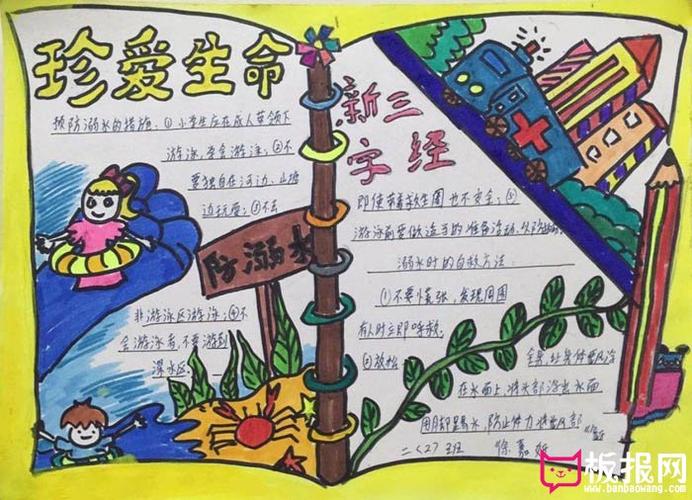 珍爱生命
预防溺水的措施:①小学生应在成人带领下
游泳学会游泳;②不
要独自在河边、山塘
边玩耍;③不去
非游泳区游泳;④不
会游泳者,不要游到
深水区,
防溺水
新三
字经
即使带着救生圈也不安全;⑤
游泳前要做适当的准备活动,以防抽筋.
溺水时的自救方法
①不要慌张,发现周围
有人时立即呼救
②放松全身,让身体漂浮
在水面上,将头部浮出水面
用脚踢水,防止体力
二(2)班
徐嘉
板报网
www.banbaowang.com